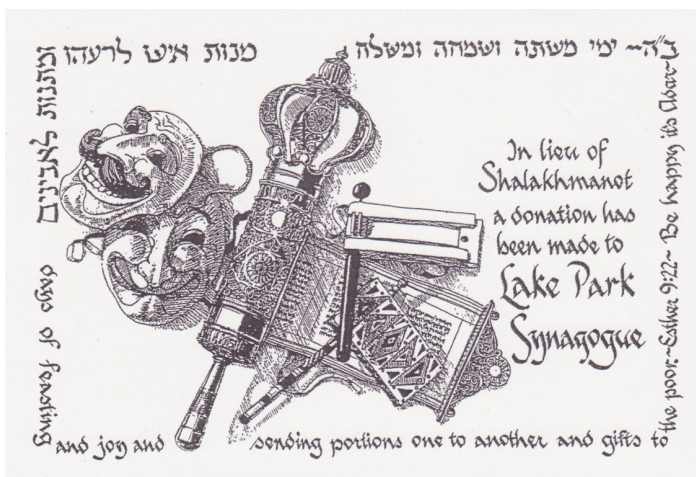 ב"ה~ ימי משתה ושמחה ומשלח
מנות איש לרעהו
ומתנות לאביונים
In lieu of
Shalakhmanot
a donation has
been made to
Lake Park
Synagogue
days of feasting
and joy and sending portions one to another and gifts to
the poor.~Esther 9:22~ Be happy its Adar~